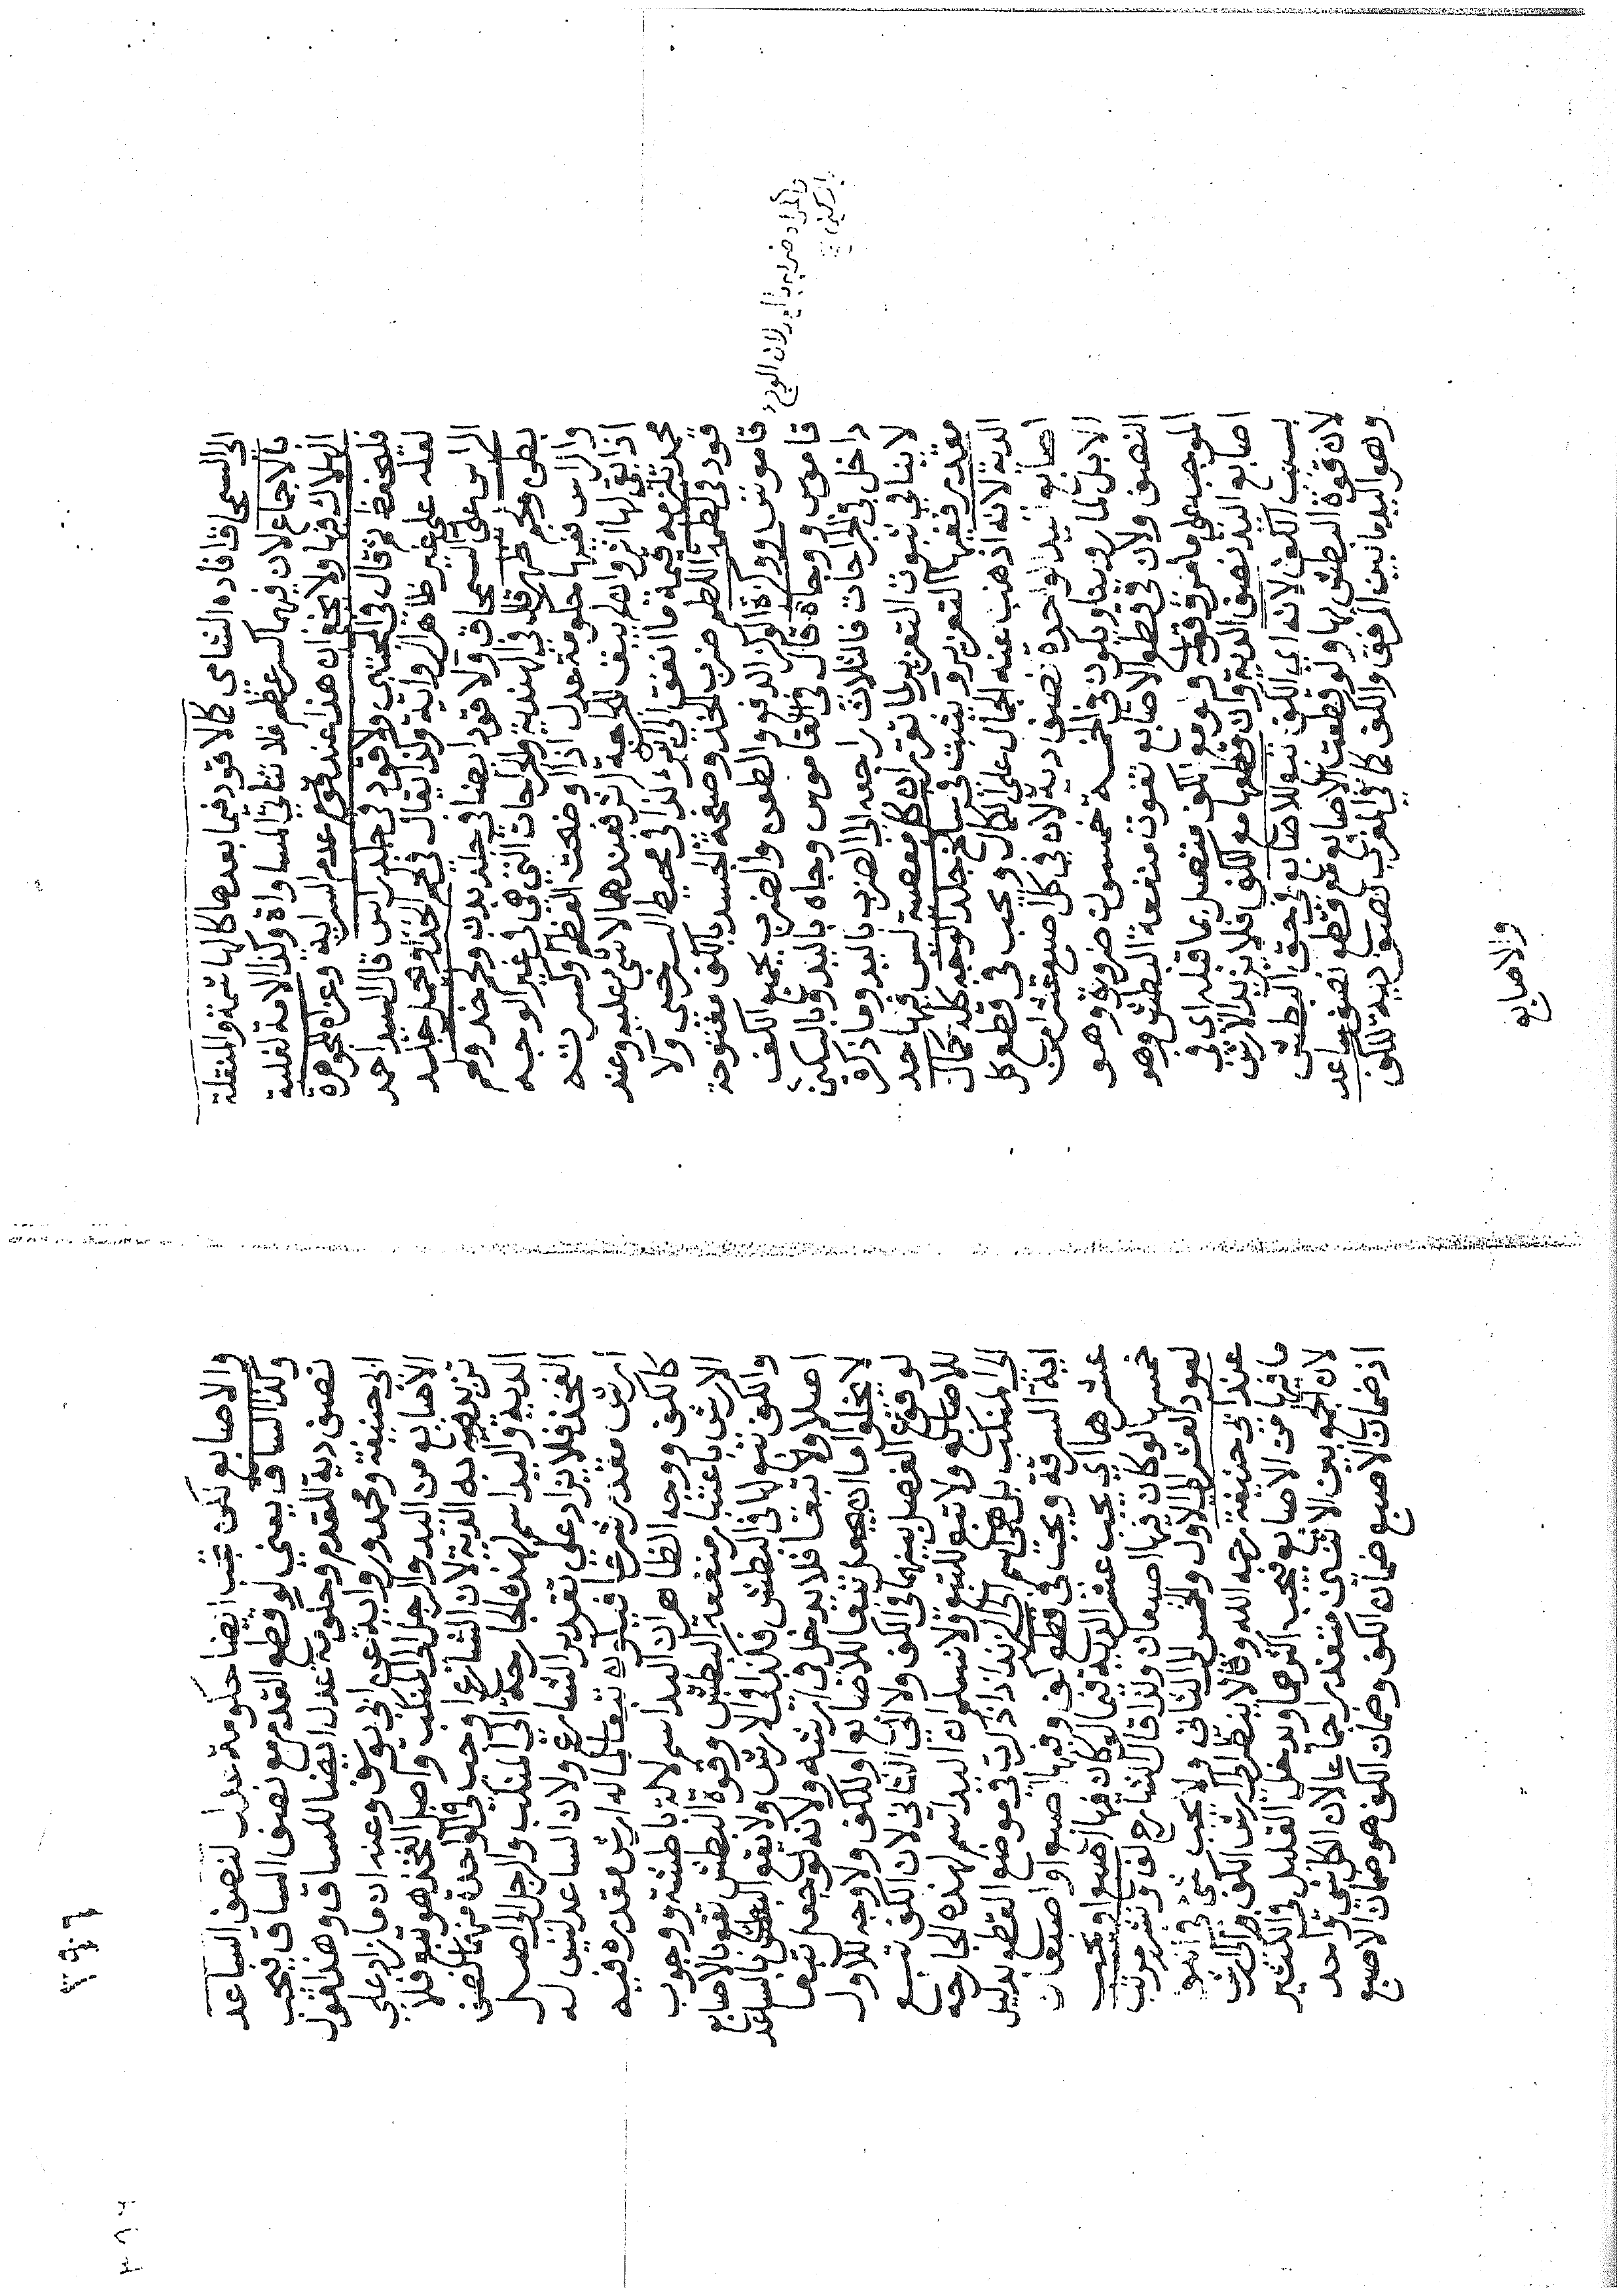 الى السمحاق افاده الشامى كما لا قود فيما بعدها كالهاشمة والمنقلة
بالاجماع لان فيهما كسر عظم فلا تتأتى المساواة وكذا الامة لغلبة
الهلاك فيها ولا يخفى ان هذا عند وقوع عدم السراية وعزاه للجوهرة
فليحفظ ثم قال في المجتبى ولا قود في جلد راس قال السيد احمد
لعله على غير ظاهر الرواية وكذا يقال في لحم الخد ولحم جلد
الراس على السمحاق ولا قود ايضا في جلد بدن ولحم خد ولحم
بطن ولحم ظهر قال في الهندية والجراحات التي هي في غير الوجه
والراس ففيها حكومة عدل اذا اوضحت العظم او كسرته
اذا بقى لها اثر وان لم يبق للجراحة اثر فعندهما لا شئ عليه وعند
محمد يلزمه قيمة ما انفق الى البرء كذا في محيط السرخسى ولا
قود في لطمة اللطم ضرب الخد وصفحة الجسد بالكف مفتوحة
قاموس ووكزة الوكز الدفع والطعن والضرب بجميع الكف
قاموس ووجاة قال في القاموس وجاه باليد وبالسكين
داخل في الجراحات فالثلاث راجعه الى الضرب باليد وما ذكره
لا ينافي ثبوت التعزير لما تقرر ان كل معصية ليس فيها حد
مقدر ففيها التعزير ويثبت في سلخ جلد الوجه كله كمال
الدية لانه اذهب عنه الجمال على الكمال ويجب في قطع كل
اصابع اليد الواحدة نصف دية لان في كل اصبع عشرا من
الابل لما روينا ويكون في الخمسة خمسون ضرورة وهو
النصف ولان في قطع الاصابع تفويت منفعة البطش وهو
الموجب على ما مر وقوله ولو مع الكف متصل بما قبله اى في
اصابع اليد نصف الدية وان قطعها مع الكف فلا يزيد الارش
بسبب الكف لانه اي الكف تبع للاصابع في حق البطش
لان قوة البطش بها ولو قطعت الاصابع مع قطع نصف ساعد
وهو اليد مابين المرفق والكف كما في المغرب نصف دية للكف
والاصابع
والمراد ضربه باليد لان الوجئ
بالسكين
والاصابع لكن تجب ايضا حكومة عدل لنصف الساعد
وكذا الساق يعني لو قطع القدم مع نصف الساق فيجب
نصف دية للقدم وحكومة عدل ايضا للساق وهذا قول
ابي حنيفة ومحمد ورواية عن ابي يوسف وعنه ان مازاد على
الاصابع من اليد والرجل الى المنكب واصل الفخذ هو تبع فلا
يزيد به الدية لان الشارع اوجب في الواحدة منهما نصف
الدية واليد اسم لهذه الجارحة الى المنكب والرجل الى اصل
الفخذ فلا يزاد على تقدير الشارع ولان الساعد ليس له
ارش مقدر شرعا فيكون تبعا لماله ارش مقدر فيه
كالكف ووجه الظاهر ان اليد اسم لالة باطشة ووجوب
الارش باعتبار منفعة البطش وقوة البطش تقع بالاصابع
والكف تبع لها في البطش فكذا في الارش ولا يقع البطش بالساعد
اصلا ولا تبعا فلا يدخل في ارشه ولانه لو جعل تبعا
لا يخلوا اما ان يجعل تبعا للاصابع او للكف ولا وجه للاول
لوقوع الفصل بينهما والكف ولا الى الثاني لان الكف تبع
للاصابع ولا تبع للتبع ولا نسلم ان اليد اسم لهذه الجارحه
الى المنكب بل هي اسم الى الزند اذا ذكرت في موضع القطع بدليل
اية السرقة ويجب في قطع كف وفيها اصبع او اصبعان
عشرها اي يجب عشر الدية فيما لو كان فيها اصبع او يجب
خمسها لو كان فيها اصبعان ولذا قال الشارح لف ونشر مرتب
لعود العشر الى الاول والخمس الى الثاني ولا يجب شئ في الكف
عند ابي حنيفة رحمه الله وقالا ينظر الى ارش الكف والى ارش
مافيها من الاصابع فيجب اكثرهما ويدخل القليل في الكثير
لان الجمع بين الارشين متعذر اجماعا لان الكل شئ واحد
اذ ضمان الاصبع ضمان الكف وضمان الكف هو ضمان الاصبع